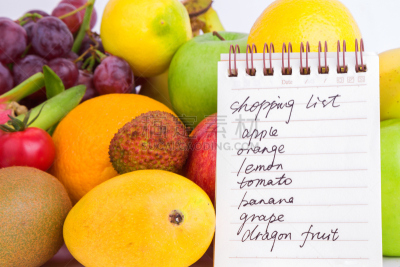 shopping list
apple
orange
lemon
tomato
banana
grape
dragon fruit